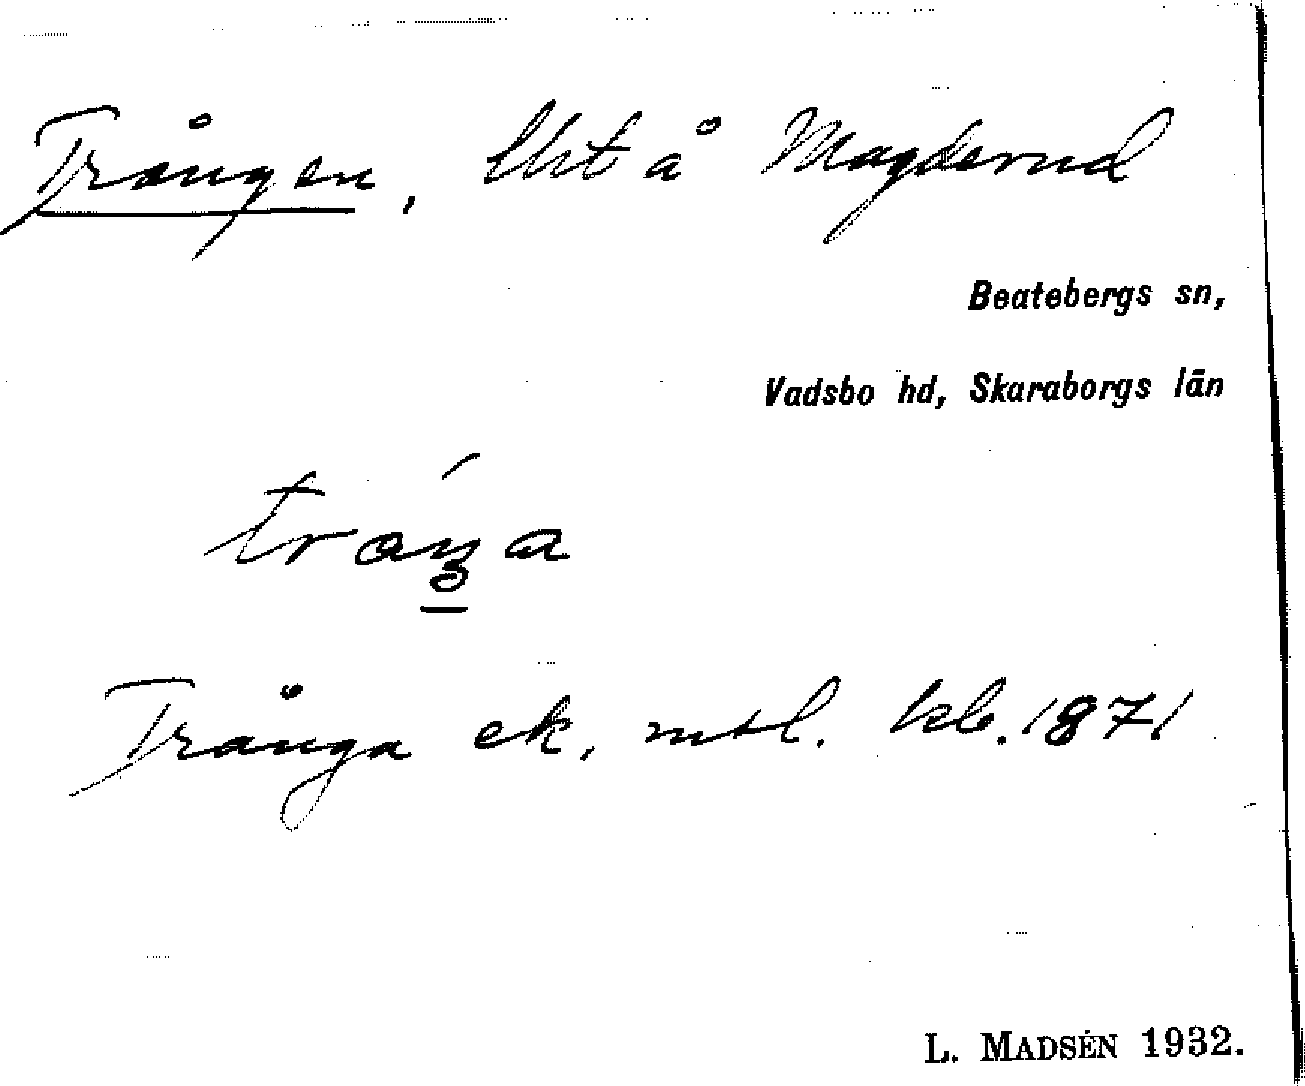 Trången, lht å Magderud
Beatebergs sn,
Vadsbo hd, Skaraborgs län
Trånga ek. mtl. kb. 1871
L. MADSÉN 1932.